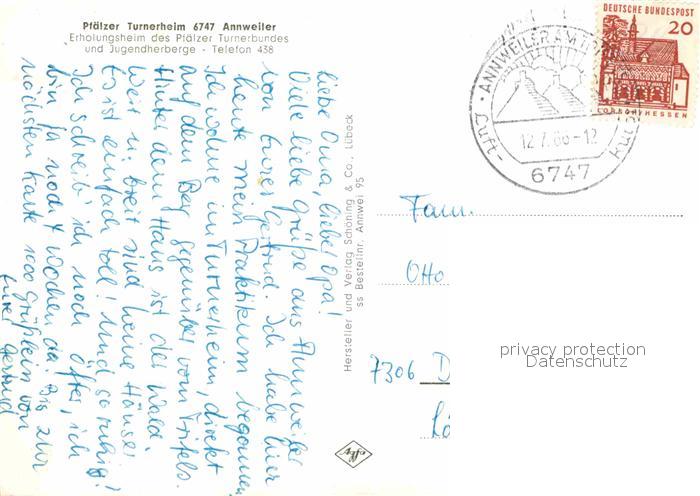 Pfälzer Turnerheim 6747 Annweiler
Erholungsheim des Pfälzer Turnerbundes
und Jugendherberge - Telefon 438
Liebe Oma, lieber Opa!
Viele liebe Grüße aus Annweiler
von Eurer Gertrud. Ich habe hier
heute mein Praktikum begonnen.
Ich wohne im Turnerheim, direkt
auf dem Berg gegenüber vom Trifels.
Hinter dem Haus ist der Wald
weit u. breit sind keine Häuser
Es ist einfach toll! Und so ruhig!
Ich schreib' ich noch öfter, ich
bin ja noch 4 Wochen da. Bis zur
nächsten Karte 1000 Grüßlein von
Eurer Gertrud
Hersteller und Verlag Schöning & Co., Lübeck
ss Bestellnr. Annwei 95
Agfa
DEUTSCHE BUNDESPOST
20
LORSCH/HESSEN
ANNWEILER AM
Luft-
12.7.66-12
6747
Fam.
Otto
7306 D
privacy protection
Datenschutz